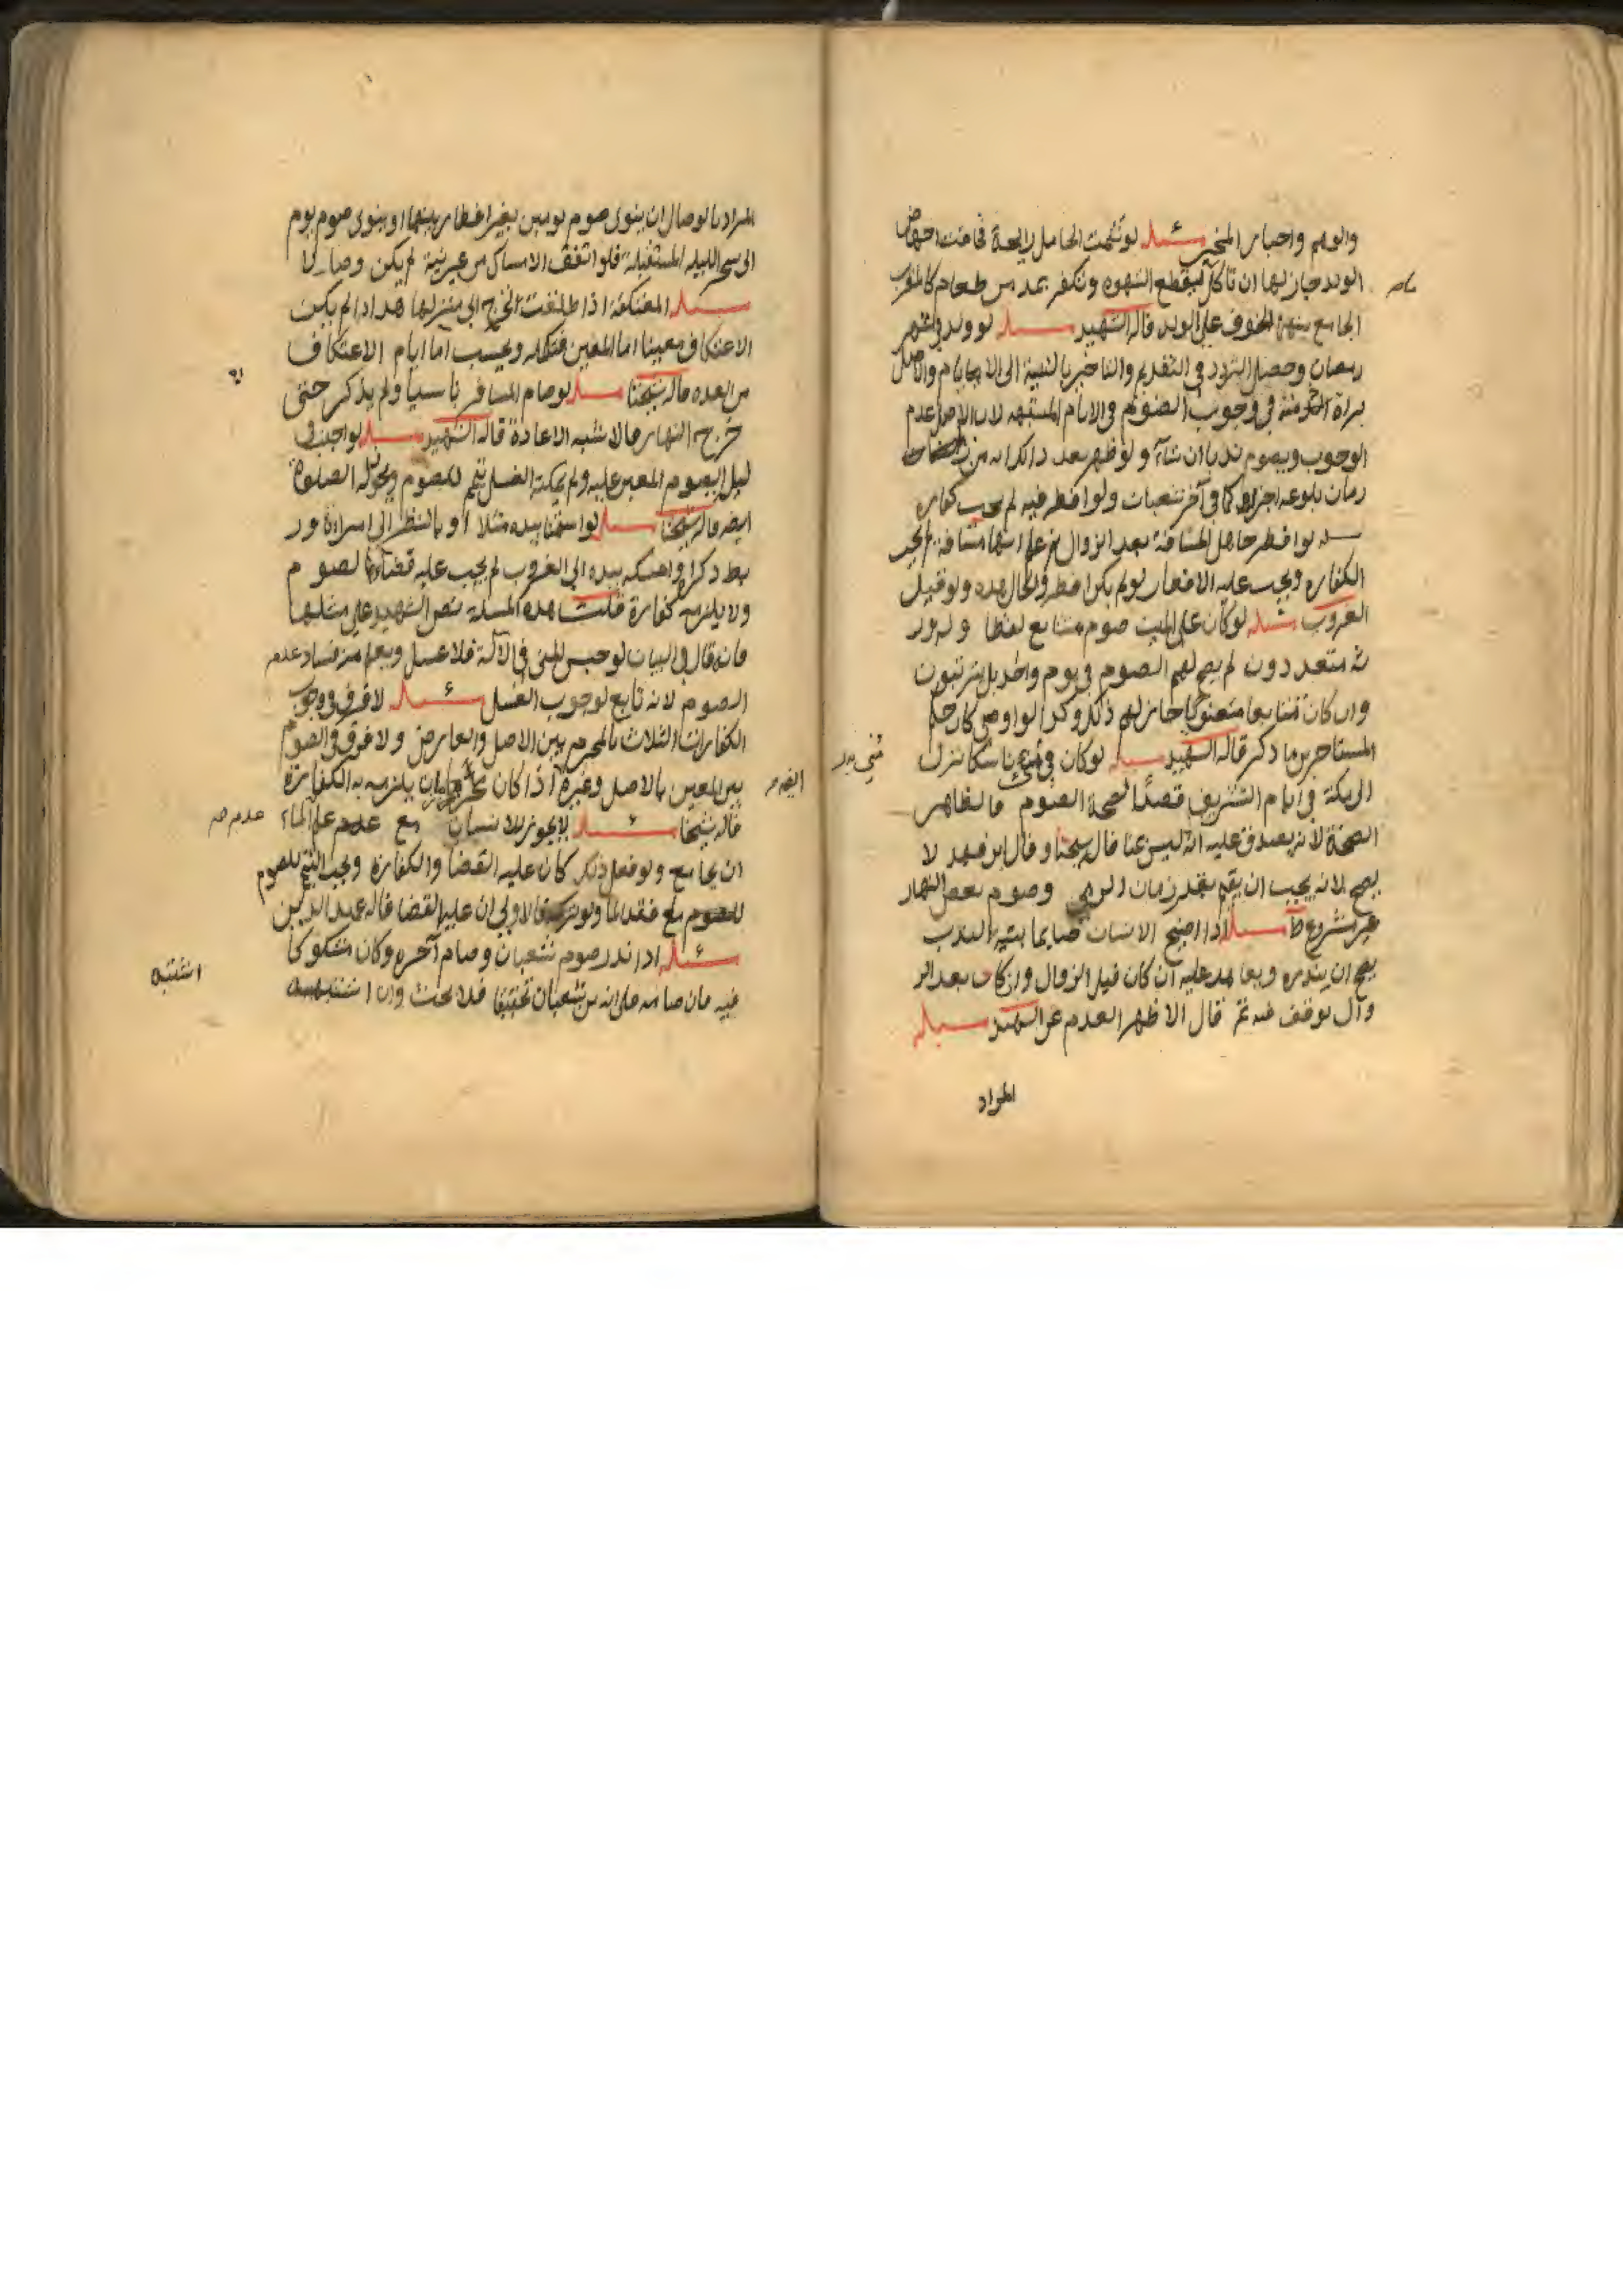 والوهم واخبار المخبر مسئله لو شمت الحامل رايحة فخافت اجهاض
الولد جاز لها ان تاكل ليقطع الشهوه وتكفر بمد من طعام كالمقرب
الجامع بينهما الخوف على الولد قاله الشهيد مسئله لو ولد في شهر
رمضان وحصل التردد في التقديم والتاخير بالنسبة الى الايام والاصل
براة الذمة في وجوب الصوم في الايام المشتبهه لان الاصل عدم
الوجوب ويصوم ندبا ان شاء ولو ظهر بعد ذلك انه من
زمان بلوغه اجزاه كما في آخر شعبان ولو افطر فيه لم يجب كفاره
مسئله لو افطر جاهل المسافة بعد الزوال ثم علم انها مسافة لم يجب
الكفاره ويجب عليه الافطار لو لم يكن افطر والحال هذه ولو قبيل
الغروب مسئله لو كان على الميت صوم متتابع لفظا وله ور
ثه متعددون لم يصح لهم الصوم في يوم واحد بل يترتبون
وان كان تتابعا معنويا جاز لهم ذلك وكذا لو اوصى كان حكم
المستاجرين ما ذكر قاله الشهيد مسئله لو كان في منى ناسكا نزل
الى مكة في ايام التشريق قصدًا لصحة الصوم فالظاهر
الصحة لانه يصدق عليه انه ليس بمنا قاله شيخنا وقال ابن فهد لا
يصح لانه يجب ان يقيم بقدر زمان الرمي وصوم بعض النهار
غير مشروع مسئله اذا اصبح الانسان صايما بنية الندب
يصح ان ينذره ويعاهد عليه ان كان قبل الزوال وان كان بعد الز
وال توقف فيه ثم قال الاظهر العدم عن الشهيد مسئله
المراد
المراد بالوصال ان ينوي صوم يومين بغير افطار بينهما او ينوي صوم يوم
الى سحر الليله المستقبلة فلو اتفق الامساك من غير نية لم يكن وصالا
مسئله المعتكفة اذا طلقت تخرج الى منزلها هذا اذا لم يكن
الاعتكاف معينا اما المعين فتكمله ويحسب اما ايام الاعتكاف
من العده قاله شيخنا مسئله لو صام المسافر ناسيا ولم يذكر حتى
خرج النهار فالاشبه الاعادة قاله الشهيد مسئله لو اجنب في
ليل الصوم المعين عليه ولم يمكنه الغسل تيمم للصوم ويجوز له الصلوة
ايضه قاله شيخنا مسئله لو استمنا بيده مثلا او بالنظر الى امراة ور
بط ذكره وامسكه بيده الى الغروب لم يجب عليه قضاء الصوم
ولا يلزمه كفارة قلت هذه المسلة نص الشهيد على مثلها
فانه قال في البيان لو حبس المني في الآلة فلا غسل ويعلم منه فساد عدم
الصوم لانه تابع لوجوب الغسل مسئله لا فرق في وجوب
الكفارات الثلاث بالمحرم بين الاصل والعارض ولا فرق في الصوم
بين المعين بالاصل وغيره اذا كان يلزمه به الكفارة
قاله شيخنا مسئله لا يجوز للانسان مع عدم علم الماء
ان يجامع ولو فعل ذلك كان عليه القضا والكفارة ويجب التيمم للصوم
للصوم مع فقد الماء ولو تركه فالاولى ان عليه القضا قاله عميد الدين
مسئله اذا نذر صوم شعبان وصام آخره وكان مشكوكا
فيه فان صامه على انه من شعبان تحقيقا فلا حنث وان اشتبه
عدم صح
اشتبه